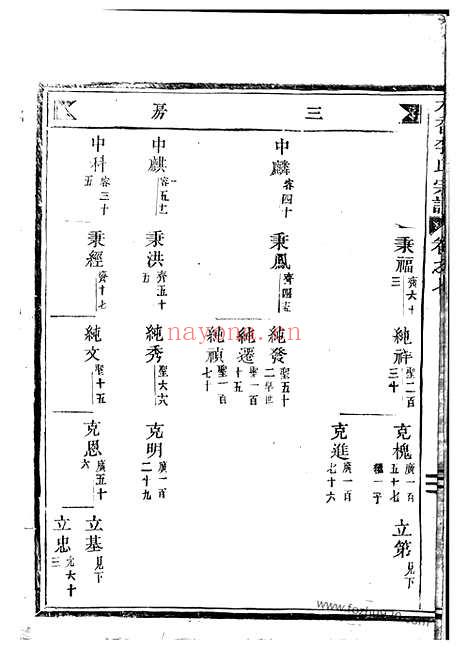 三房
秉福 齊六十三
純祥 聖二百三十
克槐 廣一百五十七
立第 見下
克進 廣一百七十六
中麟 容四十
秉鳳
純發 聖五十二
純遷 聖一百十五
純禎 聖一百七十
中麒
秉洪 齊五十五
純秀 聖六六
克明 廣一百二十九
中科 容三十五
秉經 齊十七
純文 聖十五
克恩 廣五十六
立基 見下
立忠 光六十三
nayona.cn
www.fozhuyo.com